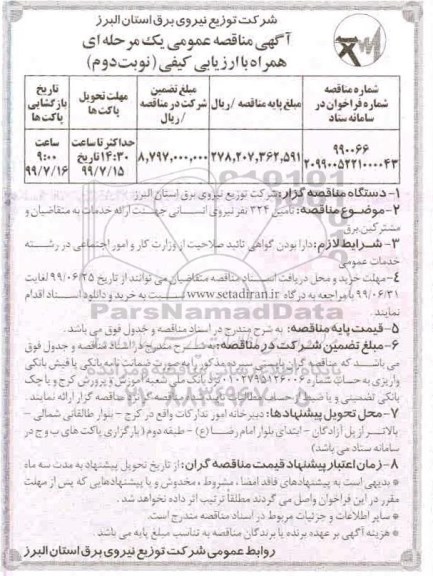 شرکت توزیع نیروی برق استان البرز
آگهی مناقصه عمومی یک مرحله ای
همراه با ارزیابی کیفی (نوبت دوم)
شماره مناقصه شماره فراخوان در سامانه ستاد
مبلغ پایه مناقصه / ریال
مبلغ تضمین شرکت در مناقصه / ریال
مهلت تحویل پاکت ها
تاریخ بازگشایی پاکت ها
۹۹۰۰۶۶
۲۰۹۹۰۰۵۲۲۱۰۰۰۰۴۳
۲۷۸,۲۰۷,۳۶۲,۵۹۱
۸,۷۹۷,۰۰۰,۰۰۰
حداکثر تا ساعت ۱۴:۳۰ تاریخ ۹۹/۷/۱۵
ساعت ۹:۰۰ ۹۹/۷/۱۶
۱- دستگاه مناقصه گزار: شرکت توزیع نیروی برق استان البرز
۲- موضوع مناقصه: تامین ۳۲۴ نفر نیروی انسانی جهت ارائه خدمات به متقاضیان و
مشترکین برق
۳- شرایط لازم: دارا بودن گواهی تائید صلاحیت از وزارت کار و امور اجتماعی در رشته
خدمات عمومی
۴- مهلت خرید و محل دریافت اسناد مناقصه: متقاضیان می توانند از تاریخ ۹۹/۰۶/۲۵ لغایت
۹۹/۰۶/۳۱ با مراجعه به درگاه www.setadiran.ir نسبت به خرید و دانلود اسناد اقدام
نمایند.
۵- قیمت پایه مناقصه: به شرح مندرج در اسناد مناقصه و جدول فوق می باشد.
۶- مبلغ تضمین شرکت در مناقصه: به شرح مندرج در اسناد مناقصه و جدول فوق
می باشد که مناقصه گران بایستی سپرده مذکور را به صورت ضمانت نامه بانکی یا فیش بانکی
واریزی به حساب شماره ۰۱۰۲۷۹۵۱۲۶۰۰۶ نزد بانک ملی شعبه آموزش و پرورش کرج و یا چک
بانکی تضمینی و یا
مناقصه گزار ارائه نمایند.
۷- محل تحویل پیشنهادها: دبیرخانه امور تدارکات واقع در کرج - بلوار طالقانی شمالی -
بالاتر از پل آزادگان - ابتدای بلوار امام رضا (ع) - طبقه دوم (بارگزاری پاکت های ب و ج در
سامانه ستاد می باشد)
۸- زمان اعتبار پیشنهاد قیمت مناقصه گران: از تاریخ تحویل پیشنهاد به مدت سه ماه
* بدیهی است به پیشنهادهای فاقد امضا، مشروط، مخدوش و یا پیشنهادهایی که پس از مهلت
مقرر در این فراخوان واصل می گردند مطلقاً ترتیب اثر داده نخواهد شد.
* سایر اطلاعات و جزئیات مربوط در اسناد مناقصه مندرج است.
* هزینه آگهی بر عهده برنده یا برندگان مناقصه به تناسب مبلغ پایه می باشد.
روابط عمومی شرکت توزیع نیروی برق استان البرز
ParsNamadData